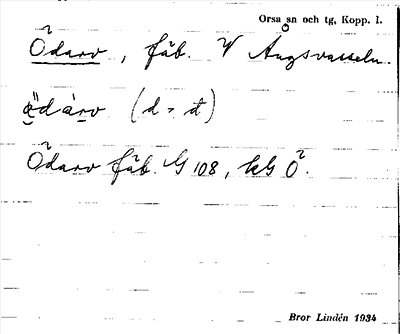 Orsa sn och tg, Kopp. l.
Ödarv, fäb. V Ångsvasseln.
ä̤dàrv (d = đ)
Ödarv fäb. G 108, kG Ö.
Bror Lindén 1934